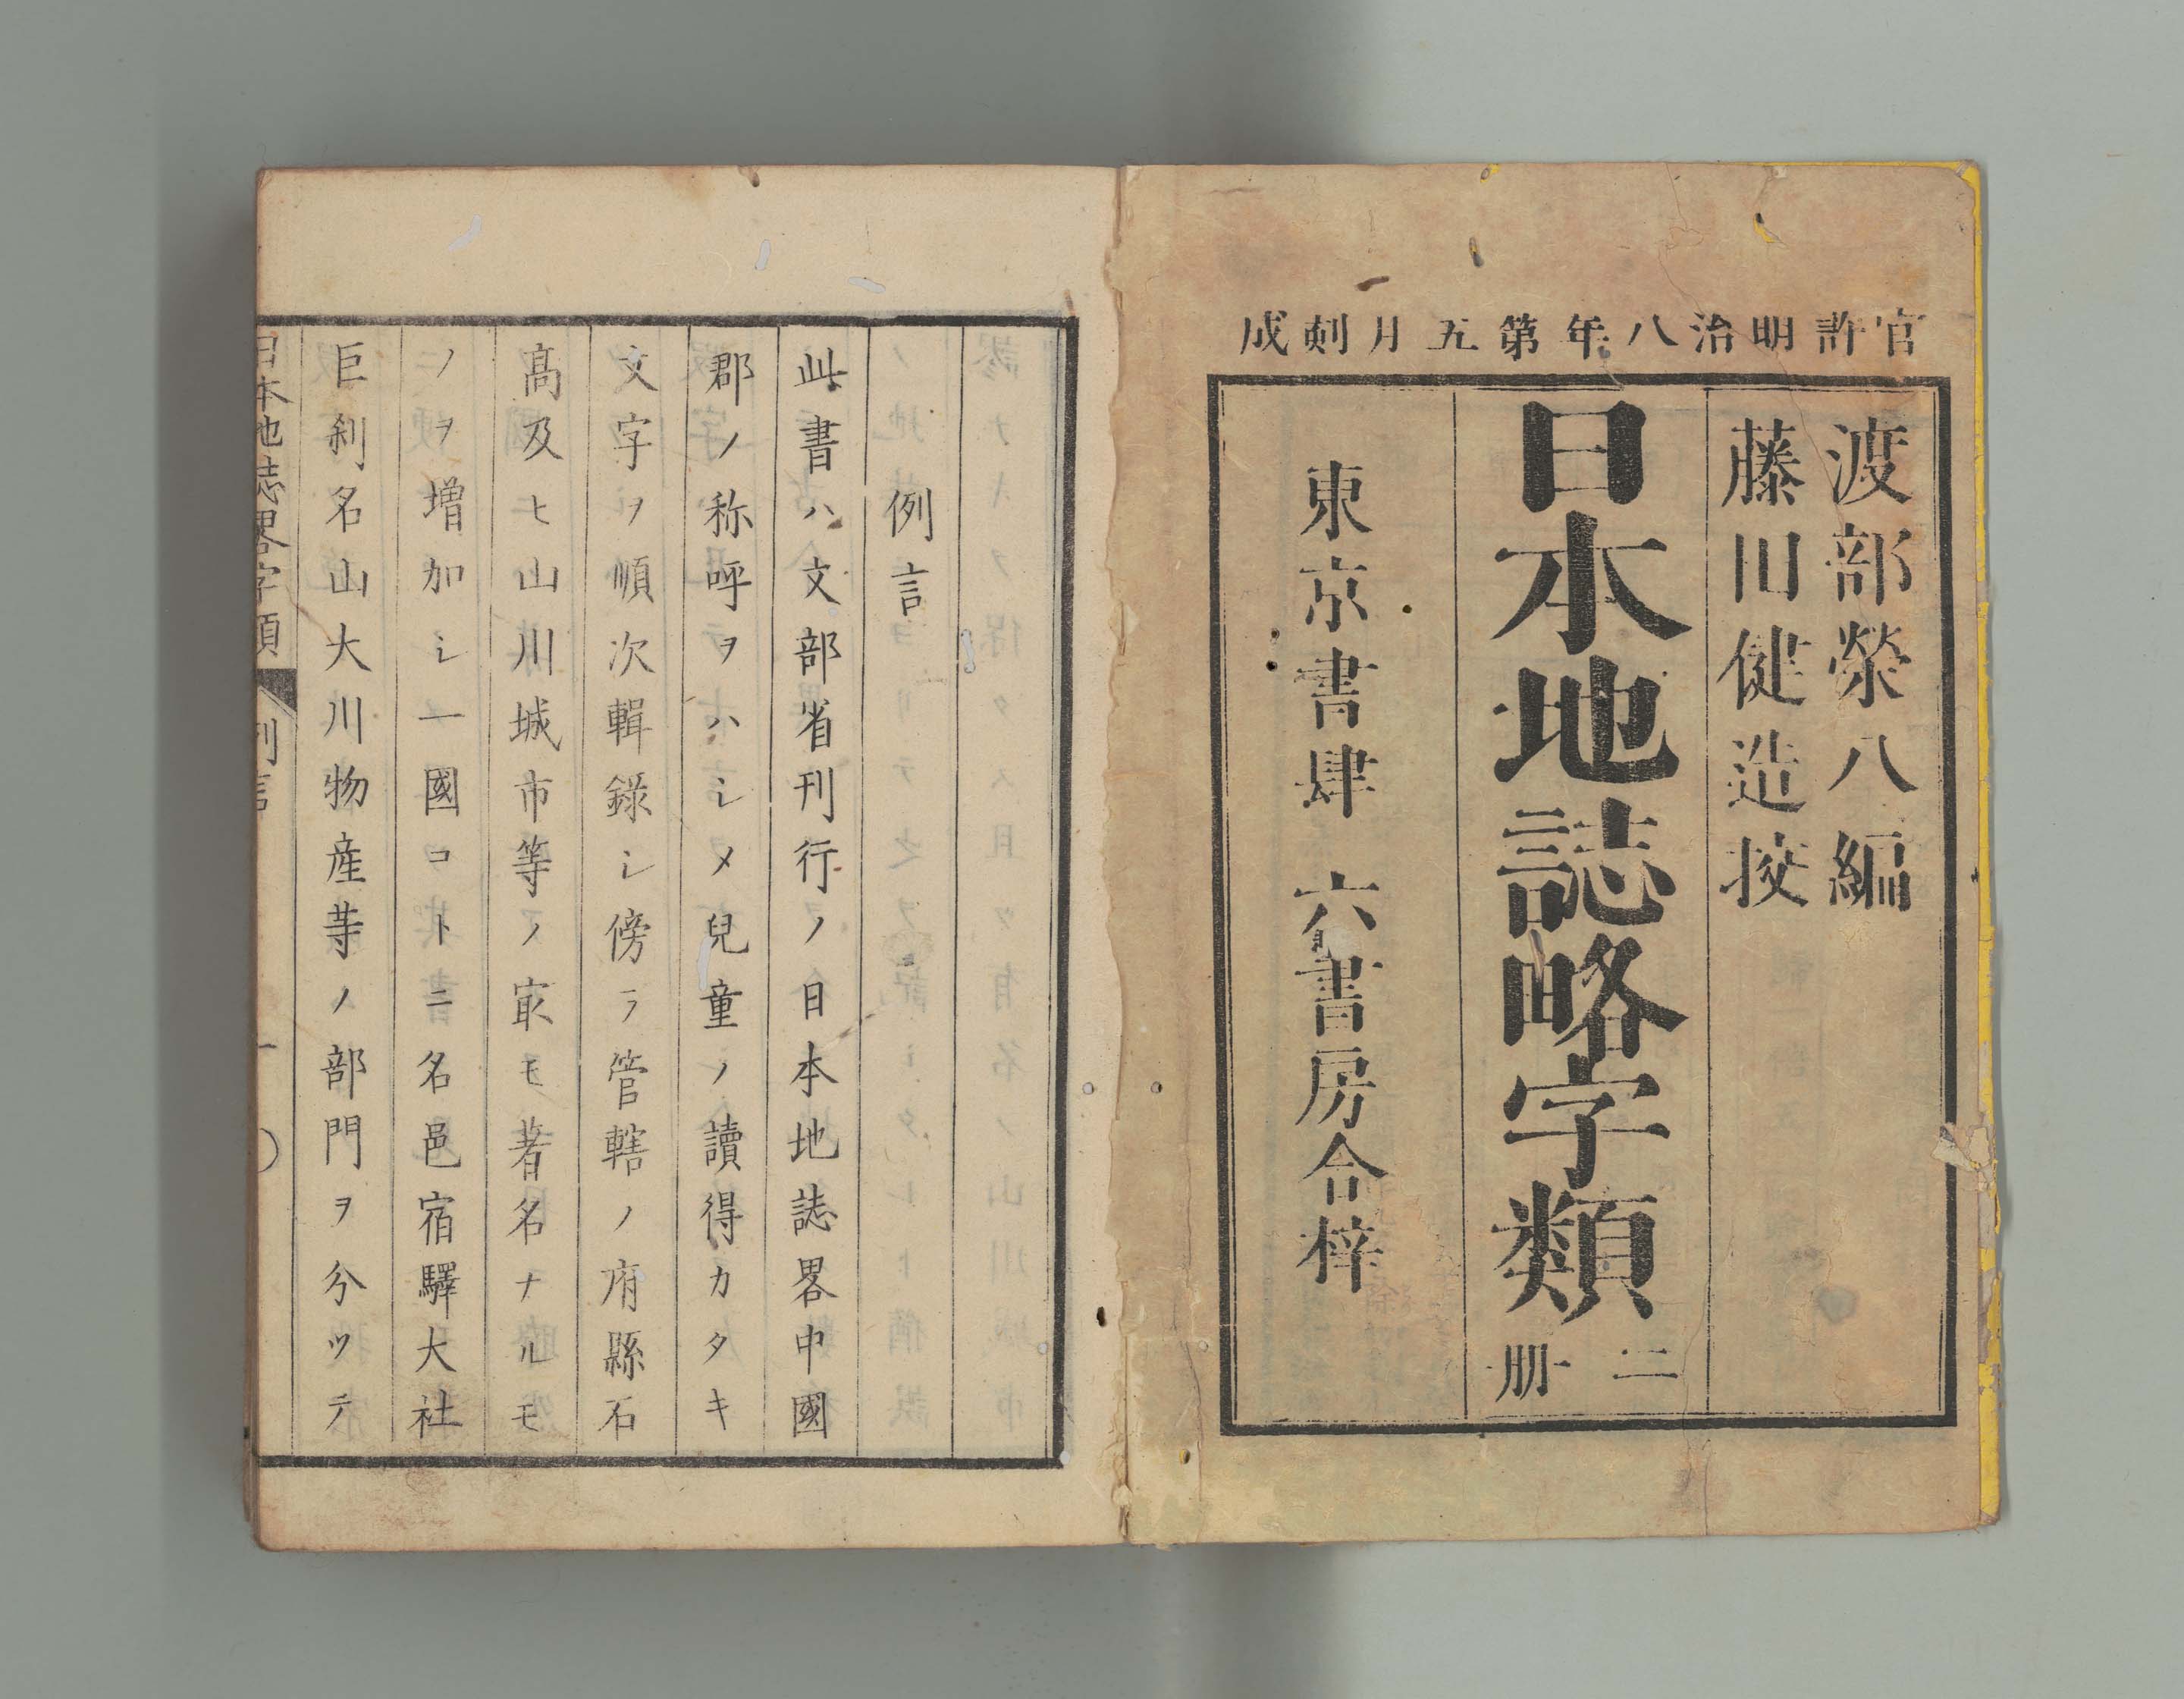 官許明治八年第五月刻成
渡部榮八編
藤田健造挍
日本地誌略字類
二冊
東京書肆 六書房合梓
例言
此書ハ文部省刊行ノ日本地誌畧中國
郡ノ称呼ヲハシメ兒童ノ讀得カタキ
文字ヲ順次輯錄シ傍ラ管轄ノ府縣石
高及ヒ山川城市等ノ冣モ著名ナルモ
ノヲ増加シ一國コトニ名邑宿驛大社
巨刹名山大川物産䓁ノ部門ヲ分ツテ
日本地誌畧字類 例言 一